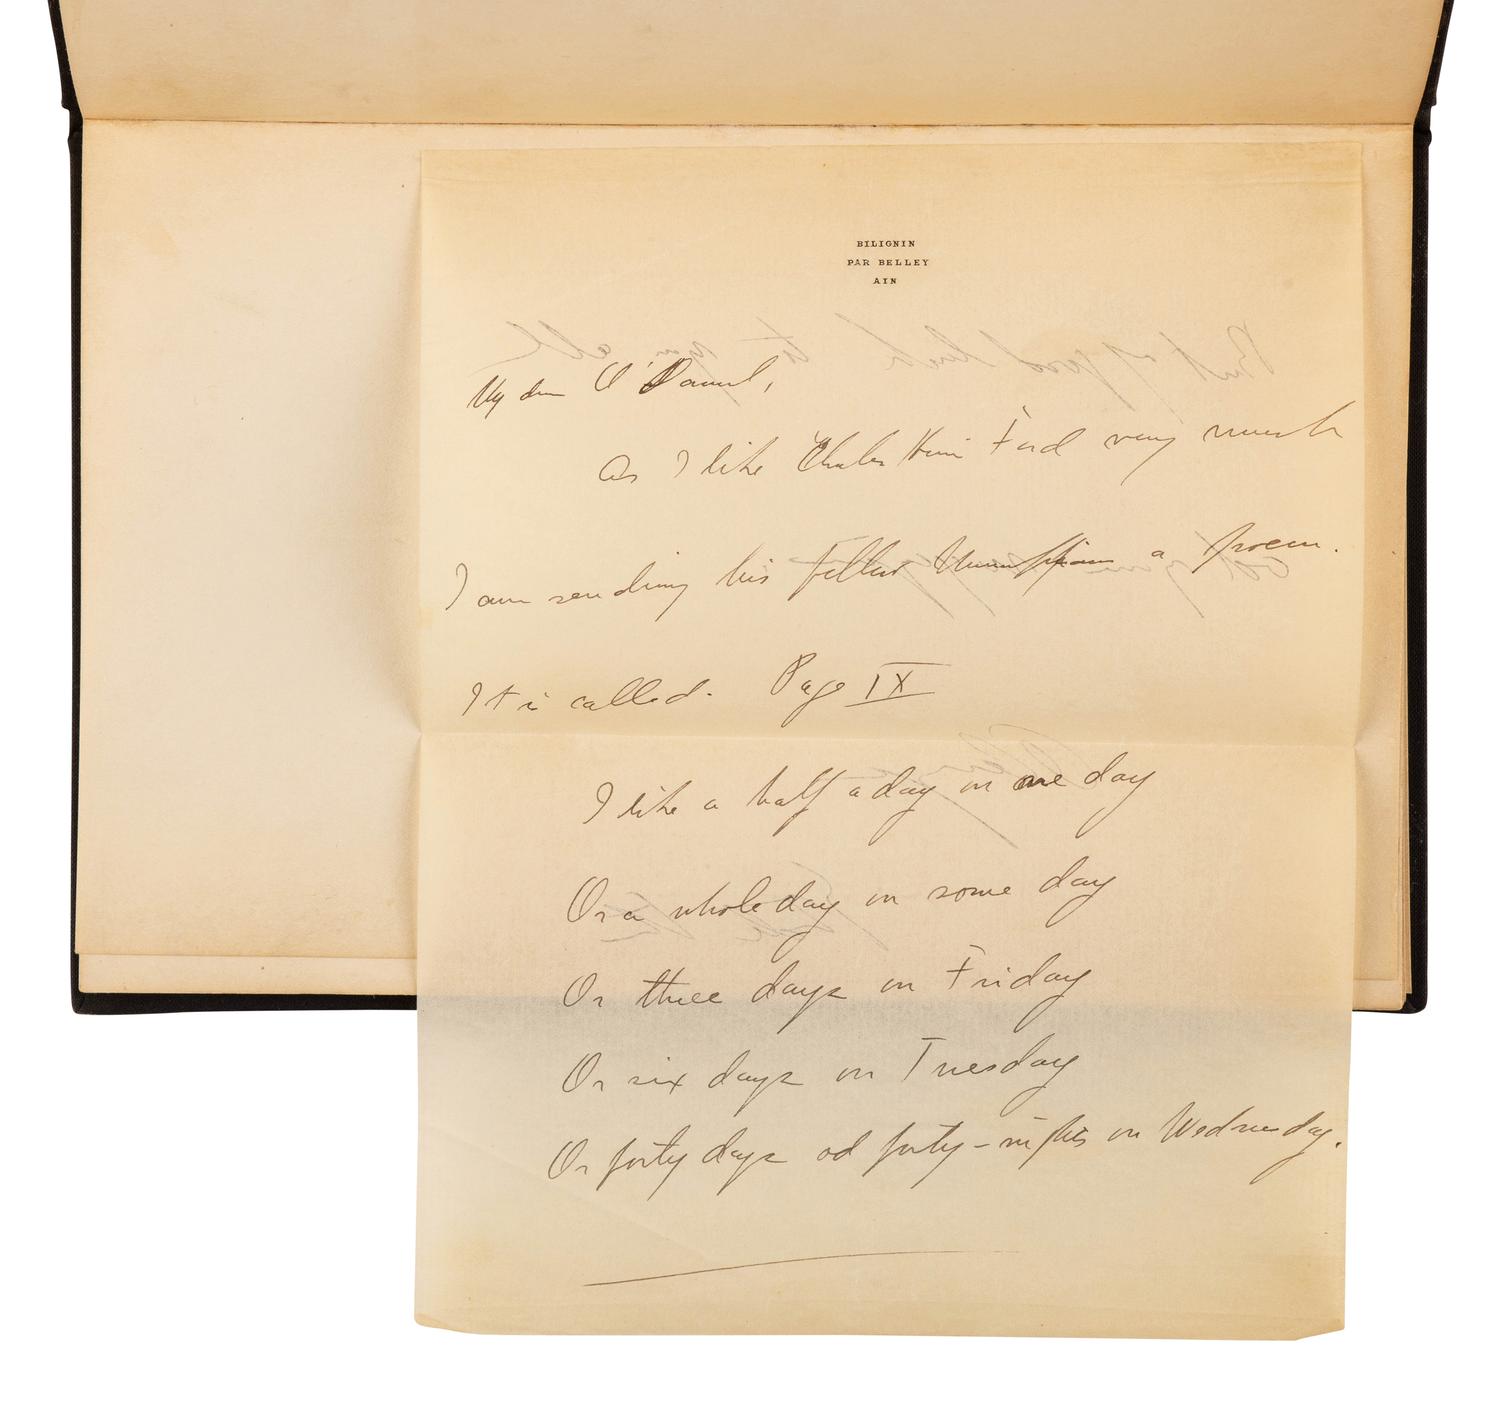 BILIGNIN
PAR BELLEY
AIN
My dear O'Daniel,
As I like Charles Henri Ford very much
I am sending his fellow Mississippian a poem.
It is called. Page IX
I like a half a day on one day
Or a whole day on some day
Or three days on Friday
Or six days on Tuesday
Or forty days and forty-nights on Wednesday.